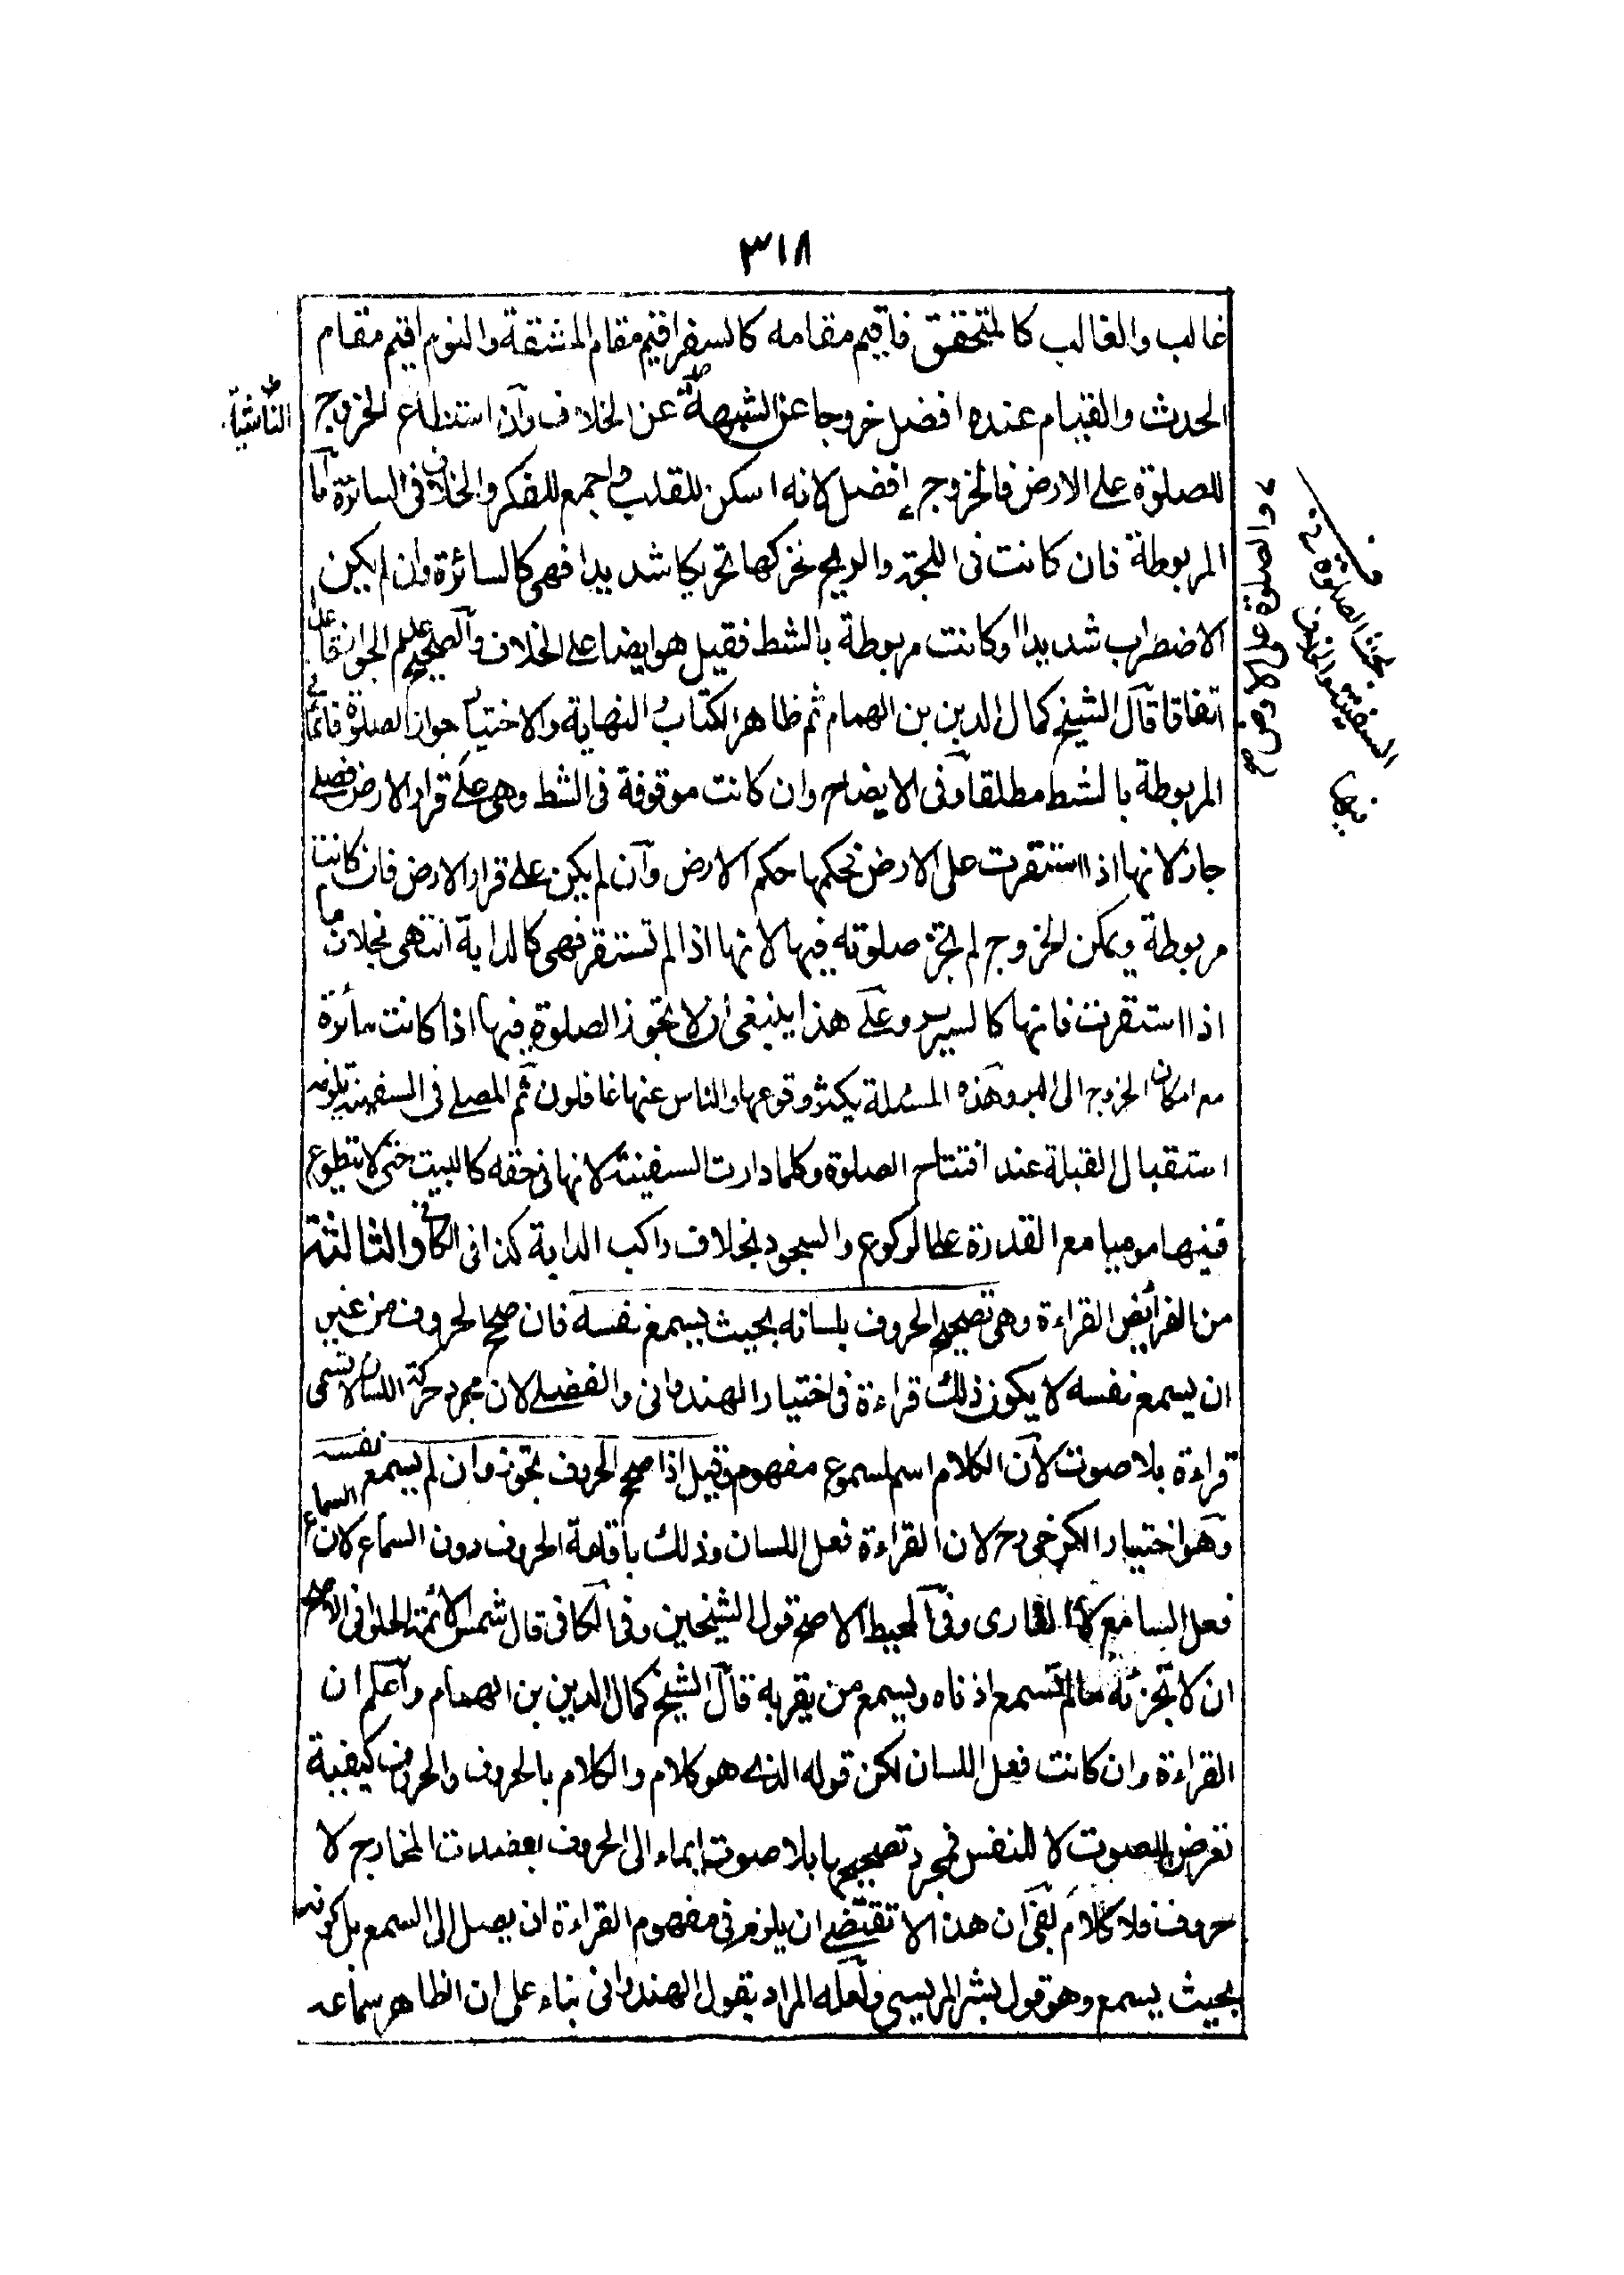 ٣١٨
غالب والغالب كالمتحقق فاقيم مقامه كالسفر اقيم مقام المشقة والنوم اقيم مقام
الحدث والقيام عنده افضل خروجا عن الشبهة عن الخلاف وان استطاع الخروج
الناشية
للصلوة على الارض فالخروج افضل لانه اسكن للقلب واجمع للفكر والخلاف في السائرة اما
المربوطة فان كانت في اللجة والريح تحركها تحريكا شديدا فهي كالسائرة وان لم يكن
الاضطراب شديدا او كانت مربوطة بالشط فقيل هو ايضا على الخلاف والصحيح الجواز
اتفاقا قال الشيخ كمال الدين بن الهمام ثم ظاهر الكتاب النهاية والاختيار جواز الصلوة قائما في
المربوطة بالشط مطلقا وفى الايضاح وان كانت موقوفة في الشط وهي على قرار الارض فصلى
جاز لانها اذا استقرت على الارض فحكمها حكم الارض وان لم يكن على قرار الارض فان كانت
مربوطة ويمكن الخروج لم تجز صلوته فيها لانها اذا لم تستقر فهى كالدابة انتهى بخلاف ما
اذا استقرت فانها كالسرير وعلى هذا ينبغي ان لا تجوز الصلوة فيها اذا كانت سائرة
مع امكان الخروج الى البر وهذه المسئلة يكثر وقوعها والناس عنها غافلون ثم المصلى في السفينة يلزمه
استقبال القبلة عند افتتاح الصلوة وكلما دارت السفينة لانها في حقه كالبيت حتى لا يتطوع
فيها موميا مع القدرة على الركوع والسجود بخلاف راكب الدابة كذا فى الكافى والثالثة
من الفرائض القراءة وهى تصحيح الحروف بلسانه بحيث يسمع نفسه فان صحح الحروف من غير
ان يسمع نفسه لا يكون ذلك قراءة في اختيار الهندوانى والفضلى لان مجرد حركة اللسان لا تسمى
قراءة بلا صوت لان الكلام اسم لمسموع مفهوم وقيل اذا صحح الحروف تجوز وان لم يسمع نفسه
وهو اختيار الكرخى رح لان القراءة فعل اللسان وذلك باقامة الحروف دون السماع لان السماع
فعل السامع لا القارى وفى المحيط الاصح قول الشيخين وفى الكافى قال شمس الائمة الحلوانى الاصح
ان لا تجزئه مالم تسمع اذناه ويسمع من يقربه قال الشيخ كمال الدين بن الهمام واعلم ان
القراءة وان كانت فعل اللسان لكن قوله الذى هو كلام والكلام بالحروف والحروف كيفية
تعرض للصوت لا للنفس فمجرد تصحيحها بلا صوت ايماء الى الحروف بعضلات المخارج لا
حروف فلا كلام بقى ان هذا لا تقتضى ان يلزم فى مفهوم القراءة ان يصل الى السمع بل كونه
بحيث يسمع وهو قول بشر المريسى ولعله المراد بقول الهندوانى بناء على ان الظاهر سماعه
والصلوة على الارض
بحث الصلوة في
السفينة